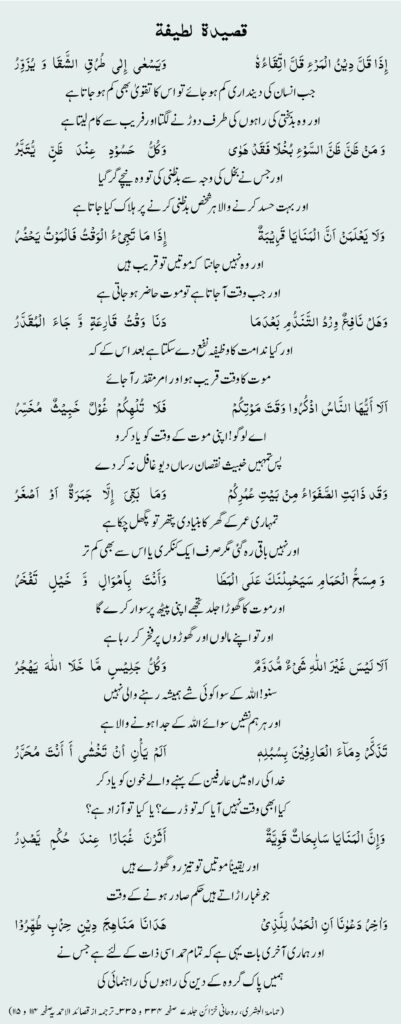 قصیدة لطیفة
إِذَا قَلَّ دِیْنُ الْمَرْءِ قَلَّ اتِّقَاءُہٗ وَیَسْعٰی إِلٰی طُرُقِ الشَّقَا وَ یُزَوِّرُ
جب انسان کی دینداری کم ہو جائے تو اس کا تقویٰ بھی کم ہو جاتا ہے
اور وہ بدبختی کی راہوں کی طرف دوڑنے لگتا اور فریب سے کام لیتا ہے
وَ مَنْ ظَنَّ ظَنَّ السَّوْءِ بُخْلًا فَقَدْ ھَوٰی وَکُلُّ حَسُوْدٍ عِنْدَ ظَنٍّ یُتَبَّرُ
اور جس نے بخل کی وجہ سے بدظنی کی تو وہ نیچے گر گیا
اور بہت حسد کرنے والا ہر شخص بدظنی کرنے پر ہلاک کیا جاتا ہے
وَلَا یَعْلَمَنْ اَنَّ الْمَنَایَا قَرِیْبَةٌ إِذَا مَا تَجِیْءُ الْوَقْتُ فَالْمَوْتُ یَحْضُرُ
اور وہ نہیں جانتا کہ موتیں تو قریب ہیں
اور جب وقت آ جاتا ہے تو موت حاضر ہو جاتی ہے
وَھَلْ نَافِعٌ وِرْدُ التَّنَدُّمِ بَعْدَمَا دَنَا وَقْتُ قَارِعَةٍ وَّ جَاءَ الْمُقَدَّرُ
اور کیا ندامت کا وظیفہ نفع دے سکتا ہے بعد اس کے کہ
موت کا وقت قریب ہو اور امر مقدّر آ جائے
اَلَا أَیُّھَا النَّاسُ اذْکُرُوا وَقْتَ مَوْتِکُمْ فَلَا تُلْھِکُمْ غُوْلٌ خَبِیْثٌ مُخَسِّرُ
اے لوگو! اپنی موت کے وقت کو یاد کرو
پس تمہیں خبیث نقصان رساں دیو غافل نہ کر دے
وَقَد ذَابَتِ الصَّفْوَاءُ مِنْ بَیْتِ عُمْرِکُمْ وَمَا بَقِیَ إِلَّا جَمْرَةٌ اَوْ اَصْغَرُ
تمہاری عمر کے گھر کا بنیادی پتھر تو پگھل چکا ہے
اور نہیں باقی رہ گئی مگر صرف ایک کنکری یا اس سے بھی کم تر
وَ مِسَحُّ الْحِمَامِ سَیَحْمِلَنَّکَ عَلَی الْمَطَا وَأَنْتَ بِأَمْوَالٍ وَّ خَیْلٍ تَفْخَرُ
اور موت کا گھوڑا جلد تجھے اپنی پیٹھ پر سوار کرے گا
اور تو اپنے مالوں اور گھوڑوں پر فخر کر رہا ہے
اَلَا لَیْسَ غَیْرَ اللّٰہِ شَیْءٌ مُّدَوَّمٌ وَکُلُّ جَلِیْسٍ مَّا خَلَا اللّٰہَ یَھْجُرُ
سنو! اللہ کے سوا کوئی شے ہمیشہ رہنے والی نہیں
اور ہر ہم نشیں سوائے اللہ کے جدا ہونے والا ہے
تَذَکَّرْ دِمَآءَ الْعَارِفِیْنَ بِسُبُلِہٖ اَلَمْ یَأْنِ اَنْ تَخْشٰی أَ أَنْتَ مُحَرَّرُ
خدا کی راہ میں عارفین کے بہنے والے خون کو یاد کر
کیا ابھی وقت نہیں آیا کہ تو ڈرے؟ یا کیا تو آزاد ہے؟
وَإِنَّ الْمَنَایَا سَابِحَاتٌ قَوِیَّةٌ أَثَرْنَ غُبَارًا عِنْدَ حُکْمٍ یَّصْدِرُ
اور یقیناً موتیں تو تیز رو گھوڑے ہیں
جو غبار اڑاتے ہیں حکم صادر ہونے کے وقت
وَاٰخِرُ دَعْوٰنَا اَنِ الْحَمْدُ لِلَّذِیْ ھَدَانَا مَنَاھِجَ دِیْنِ حِزْبٍ طُھِّرُوْا
اور ہماری آخری بات یہی ہے کہ تمام حمد اسی ذات کے لئے ہے جس نے
ہمیں پاک گروہ کے دین کی راہوں کی راہنمائی کی
(حمامۃ البشریٰ، روحانی خزائن جلد ۷ صفحہ ۳۳۴ و ۳۳۵۔ ترجمہ از قصائد الاحمدیہ صفحہ ۱۱۴ و ۱۱۵)